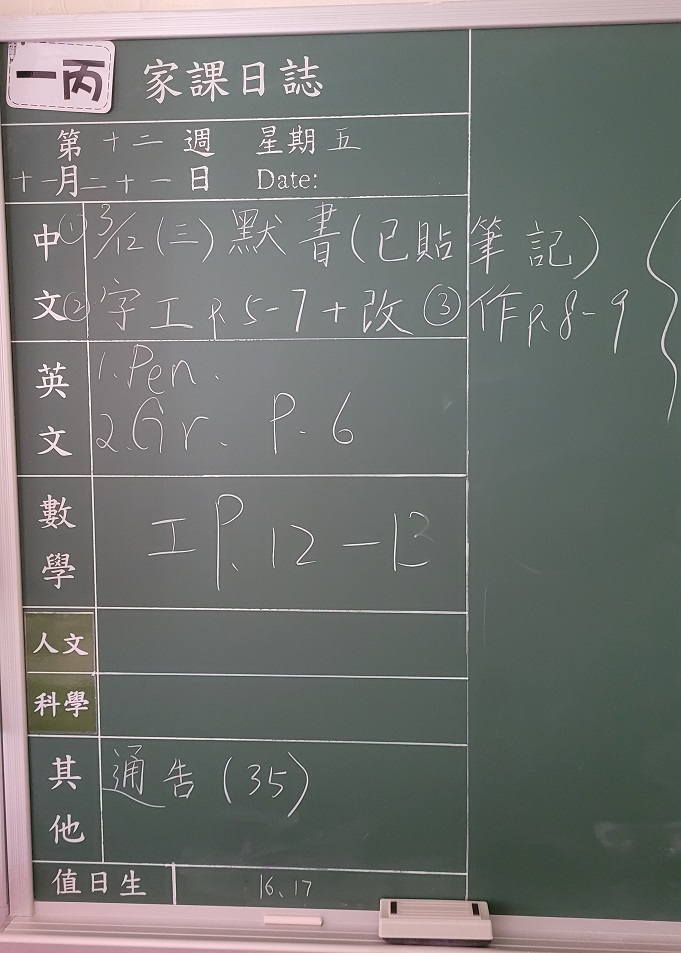 一丙 家課日誌
第十二週 星期五
十一月二十一日 Date:
中文 ① 3/12 (三) 默書 (已貼筆記)
② 字工 p.5-7+改 ③ 作 p.8-9
英文 1. Pen.
2. Gr. P.6
數學 工 P.12-13
人文
科學
其他 通告 (35)
值日生 16、17